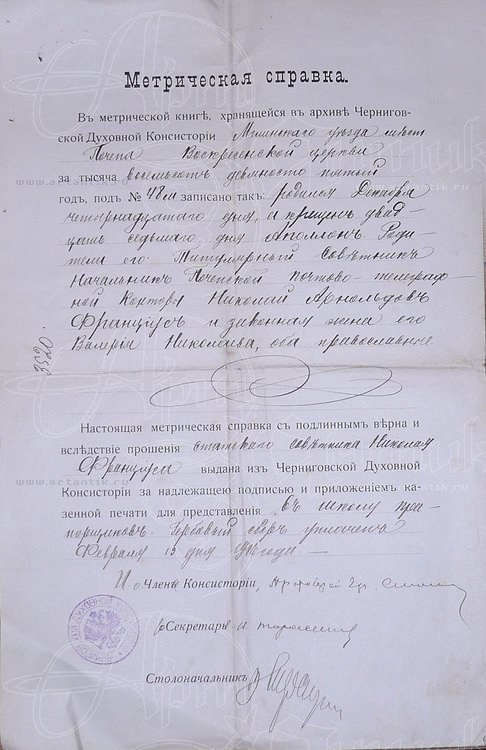 Метрическая справка.
Въ метрической книгѣ, хранящейся въ архивѣ Чернигов-
ской Духовной Консисторіи Мглинскаго уѣзда мѣст.
Почепа Воскресенской церкви
за тысяча восемьсотъ девяносто пятый
годъ, подъ № 48м записано такъ: родился Декабря
четырнадцатаго дня, а крещенъ двад-
цать седьмаго дня Аполлонъ. Роди-
тели его: Титулярный Совѣтникъ
Начальникъ Почепской почтово-телеграф-
ной Конторы Николай Арнольдовъ
Францусъ и законная жена его
Валерія Николаева, оба православные
3520.
Настоящая метрическая справка съ подлиннымъ вѣрна и
вслѣдствіе прошенія статскаго совѣтника Николая
выдана изъ Черниговской Духовной
Консисторіи за надлежащею подписью и приложеніемъ ка-
зенной печати для представленія въ школу пра-
порщиковъ. Гербовый сборъ уплаченъ
Февраля 13 дня
И. о. Члена Консисторіи,
Секретарь
Столоначальникъ
www.artantik.ru